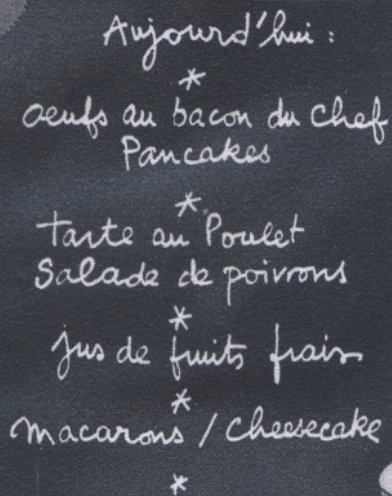 Aujourd'hui :
*
oeufs au bacon du Chef
Pancakes
*
Tarte au Poulet
Salade de poivrons
*
jus de fruits frais
*
macarons / Cheesecake
*